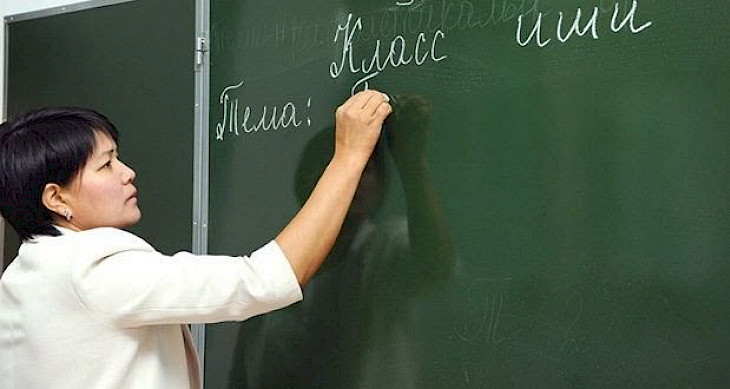 Класс иши
Тема: Т